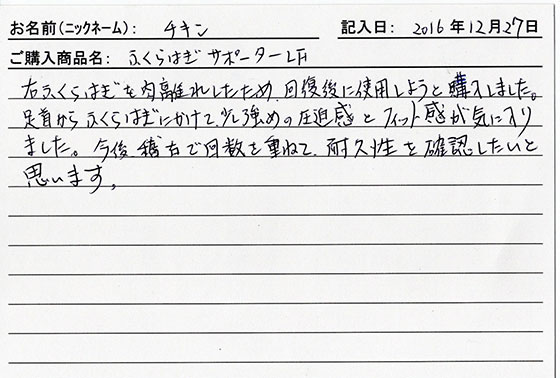 お名前(ニックネーム): チキン 記入日: 2016年12月27日
ご購入商品名: ふくらはぎサポーターLF
右ふくらはぎを肉離れしたため、回復後に使用しようと購入しました。
足首からふくらはぎにかけて、少し強めの圧迫感とフィット感が気に入り
ました。今後、稽古で回数を重ねて、耐久性を確認したいと
思います。